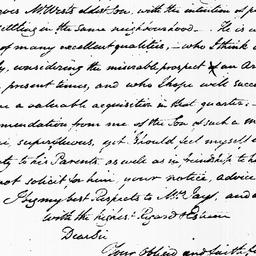 Mr Wests eldest Son, with the intention of
settling in the same neighbourhood — He is a
of many excellent qualities, — who I think
considering the miserable prospect of an Ar
present times, and who I hope will succee
a valuable acquisition in that quarter. —
mendation from me of the Son of such a m
superfluous, yet I should feel myself
to his Parents, as well as in friendship to h
not solicit, for him, your notice, advice
I beg my best Respects to Mrs Jay, and a
with the highest Regard & Esteem
Dear Sir
Your Obliged and faithf